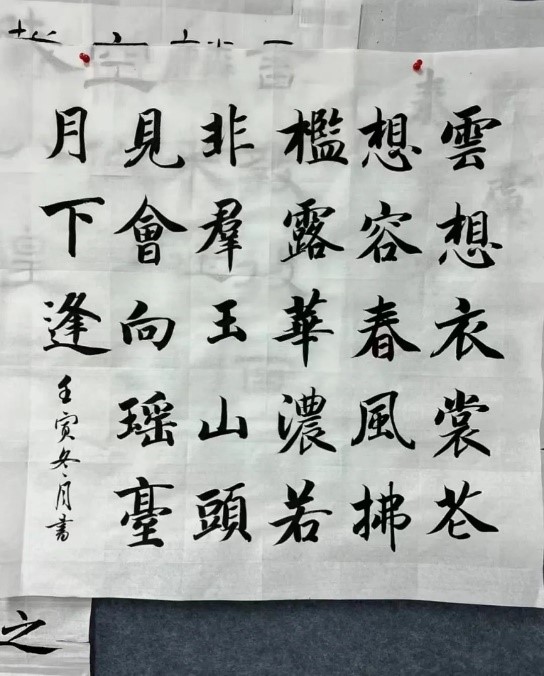 雲想衣裳花
想容春風拂
檻露華濃若
非羣玉山頭
見會向瑶臺
月下逢
壬寅冬月書
之